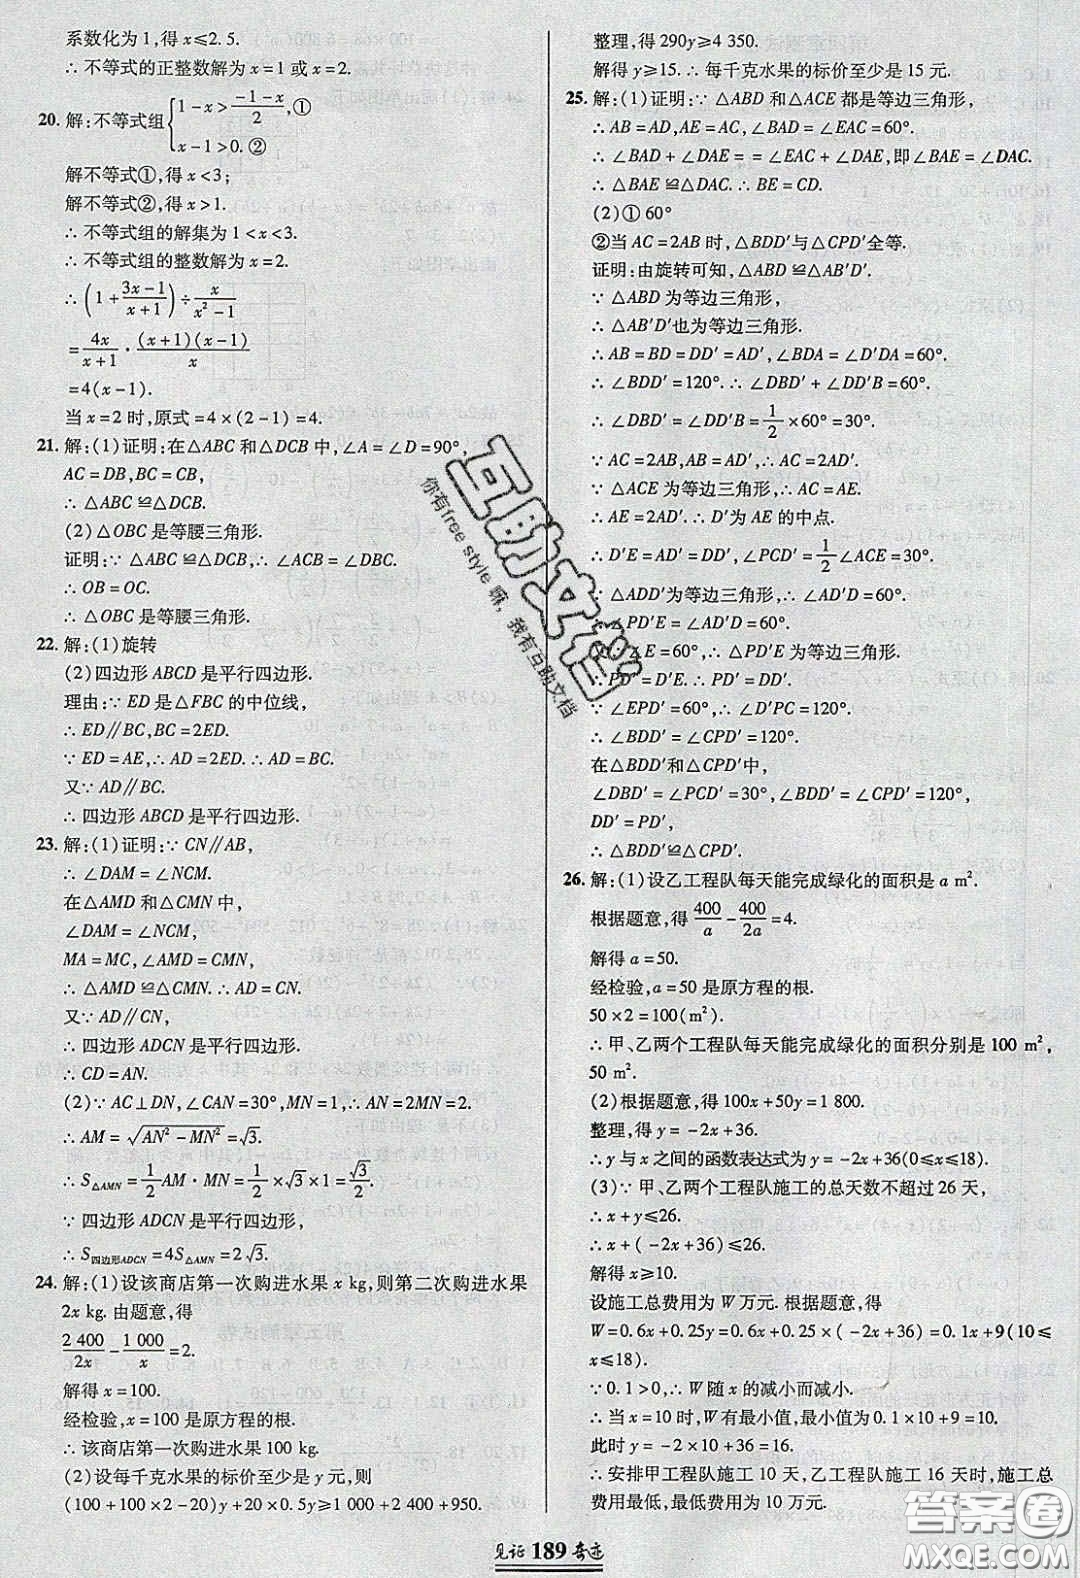 系数化为1,得x≤2.5.
∴ 不等式的正整数解为x=1或x=2.
20. 解:不等式组{1-x>(-1-x)/2,①
x-1>0.②
解不等式①,得x<3;
解不等式②,得x>1.
∴ 不等式组的解集为1<x<3.
∴ 不等式组的整数解为x=2.
∴ (1+(3x-1)/(x+1))÷x/(x²-1)
=4x/(x+1)·(x+1)(x-1)/x
=4(x-1).
当x=2时,原式=4×(2-1)=4.
21. 解:(1)证明:在△ABC和△DCB中,∠A=∠D=90°,
AC=DB,BC=CB,
∴ △ABC≌△DCB.
(2)△OBC是等腰三角形.
证明:∵ △ABC≌△DCB,∴ ∠ACB=∠DBC.
∴ OB=OC.
∴ △OBC是等腰三角形.
22. 解:(1)旋转
(2)四边形ABCD是平行四边形.
理由:∵ ED是△FBC的中位线,
∴ ED∥BC,BC=2ED.
∵ ED=AE,∴ AD=2ED.∴ AD=BC.
又∵ AD∥BC.
∴ 四边形ABCD是平行四边形.
23. 解:(1)证明:∵ CN∥AB,
∴ ∠DAM=∠NCM.
在△AMD和△CMN中,
∠DAM=∠NCM,
MA=MC,∠AMD=∠CMN,
∴ △AMD≌△CMN.∴ AD=CN.
又∵ AD∥CN,
∴ 四边形ADCN是平行四边形.
∴ CD=AN.
(2)∵ AC⊥DN,∠CAN=30°,MN=1,∴ AN=2MN=2.
∴ AM=√(AN²-MN²)=√3.
∴ S△AMN=1/2AM·MN=1/2×√3×1=√3/2.
∵ 四边形ADCN是平行四边形,
∴ S四边形ADCN=4S△AMN=2√3.
24. 解:(1)设该商店第一次购进水果x kg,则第二次购进水果
2x kg.由题意,得
2 400/2x-1 000/x=2.
解得x=100.
经检验,x=100是原方程的根.
∴ 该商店第一次购进水果100 kg.
(2)设每千克水果的标价至少是y元,则
(100+100×2-20)y+20×0.5y≥1 000+2 400+950.
整理,得290y≥4 350.
解得y≥15.∴ 每千克水果的标价至少是15元.
25. 解:(1)证明:∵ △ABD和△ACE都是等边三角形,
∴ AB=AD,AE=AC,∠BAD=∠EAC=60°.
∴ ∠BAD+∠DAE= =∠EAC+∠DAE,即∠BAE=∠DAC.
∴ △BAE≌△DAC.∴ BE=CD.
(2)①60°
②当AC=2AB时,△BDD'与△CPD'全等.
证明:由旋转可知,△ABD≌△AB'D'.
∵ △ABD为等边三角形,
∴ △AB'D'也为等边三角形.
∴ AB=BD=DD'=AD',∠BDA=∠D'DA=60°.
∴ ∠BDD'=120°.∴ ∠DBD'+∠DD'B=60°.
∴ ∠DBD'=∠DD'B=1/2×60°=30°.
∵ AC=2AB,AB=AD',∴ AC=2AD'.
∵ △ACE为等边三角形,∴ AC=AE.
∴ AE=2AD'.∴ D'为AE的中点.
∴ D'E=AD'=DD',∠PCD'=1/2∠ACE=30°.
∵ △ADD'为等边三角形,∴ ∠AD'D=60°.
∴ ∠PD'E=∠AD'D=60°.
∵ ∠E=60°,∴ △PD'E为等边三角形.
∴ PD'=D'E.∴ PD'=DD'.
∵ ∠EPD'=60°,∴ ∠D'PC=120°.
∴ ∠BDD'=∠CPD'=120°.
在△BDD'和△CPD'中,
∠DBD'=∠PCD'=30°,∠BDD'=∠CPD'=120°,
DD'=PD',
∴ △BDD'≌△CPD'.
26. 解:(1)设乙工程队每天能完成绿化的面积是a m².
根据题意,得400/a-400/2a=4.
解得a=50.
经检验,a=50是原方程的根.
50×2=100(m²).
∴ 甲、乙两个工程队每天能完成绿化的面积分别是100 m²,
50 m².
(2)根据题意,得100x+50y=1 800.
整理,得y=-2x+36.
∴ y与x之间的函数表达式为y=-2x+36(0≤x≤18).
(3)∵ 甲、乙两个工程队施工的总天数不超过26天,
∴ x+y≤26.
∴ x+(-2x+36)≤26.
解得x≥10.
设施工总费用为W万元.根据题意,得
W=0.6x+0.25y=0.6x+0.25×(-2x+36)=0.1x+9(10≤
x≤18).
∵ 0.1>0,∴ W随x的减小而减小.
∴ 当x=10时,W有最小值,最小值为0.1×10+9=10.
此时y=-2×10+36=16.
∴ 安排甲工程队施工10天,乙工程队施工16天时,施工总
费用最低,最低费用为10万元.
互助文档
你有free style 嘛,我有互助文档
答案圈
MXQE.COM
见证 189 奇迹